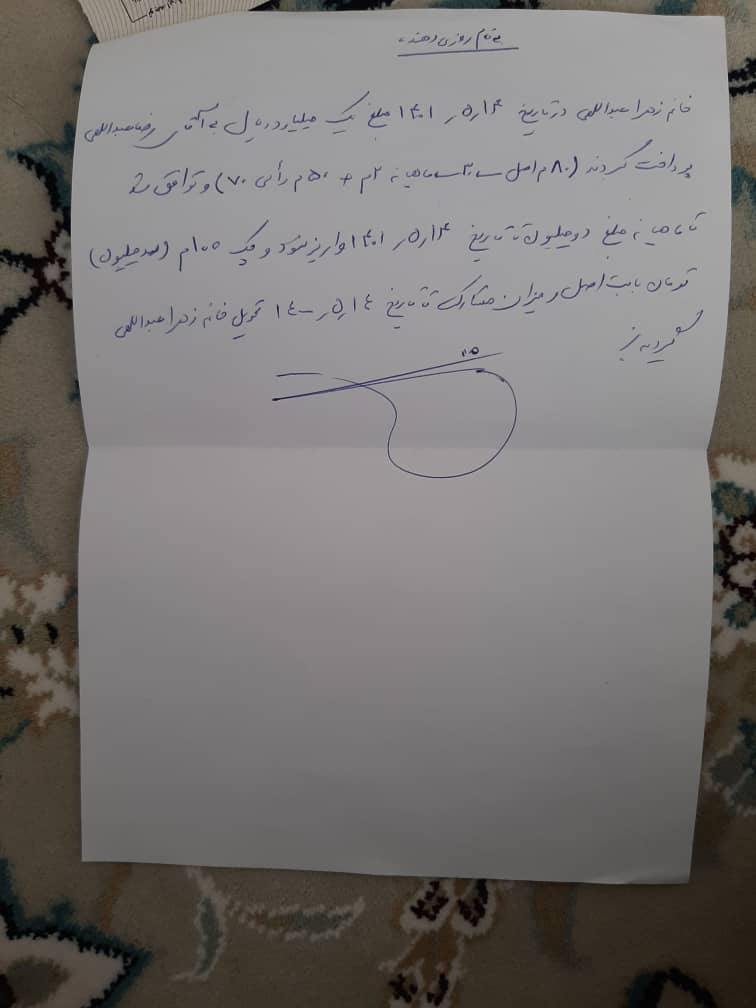 به نام روزی دهنده
خانم زهرا عبداللهی در تاریخ ۱۴۰۱٫۵٫۱۴ مبلغ یک میلیارد ریال به آقای رضا عبداللهی
پرداخت کردند (۸۰م اصل ماهیانه ۲م + ۵۰م ۷۰) و توافق شد
تا ماهیانه مبلغ دو میلیون تا تاریخ ۱۴۰۱٫۵٫۱۴ واریز شود و چک ۱۰۰م (صد میلیون)
تومان بابت اصل و میزان مشارکت تا تاریخ ۱۴۰۰٫۵٫۱۴ تحویل خانم زهرا عبداللهی
گردید